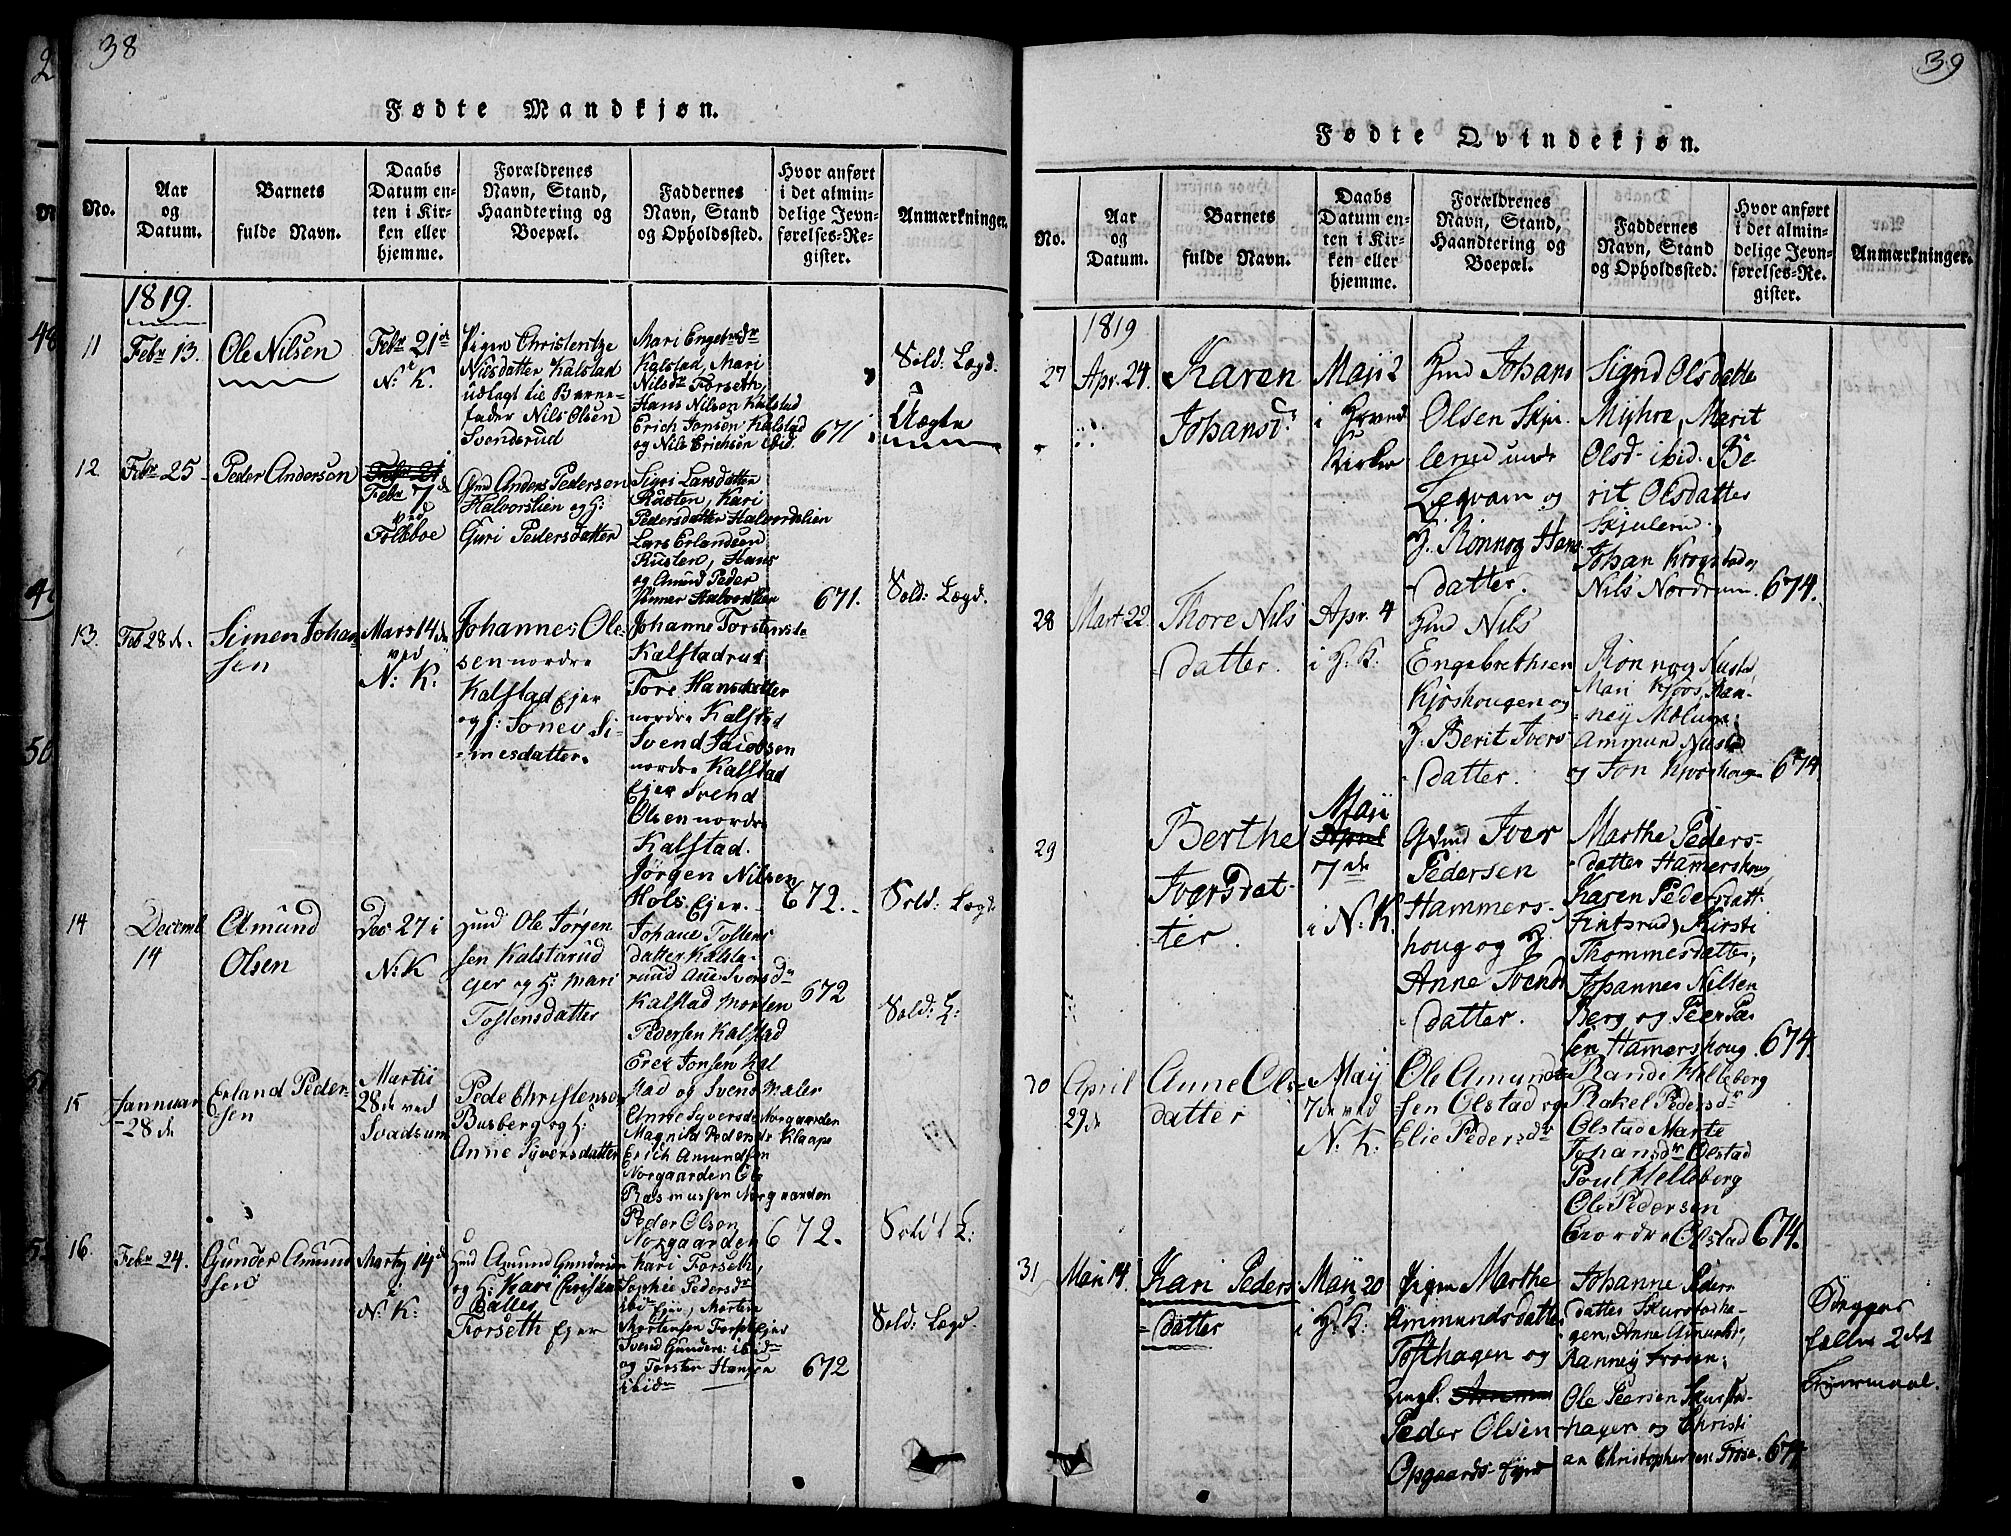 38
Fødte Mandkjøn.
No.
Aar
og
Datum.
Barnets
fulde Navn.
Daabs
Datum en-
ten i Kir-
ken eller
hjemme.
Forældrenes
Navn, Stand,
Haandtering og
Boepæl.
Faddernes
Navn, Stand
og Opholdssted.
Hvor anført
i det almin-
delige Jevn-
førelses-Re-
gister.
Anmærkninger.
1819.
11
Febr 13.
Ole Nilsen
Febr 21
N: K.
Pigen Christentze
Nilsdatter Kalstad
udlagt til Barne-
fader Nils Olsen
Svendsrud
Mari Engebrdr
Kalstad, Mari
Nilsdr Forseth,
Hans Nilsen Kalstad
Erich Jonsen Kalstad
og Nils Erichsen ibid.
671
Sold: Lægd.
Uægte
12
Febr 25
Peder Andersen
Febr 7
ved
Folsboe
Gmd Anders Pedersen
Halvorslien og H:
Guri Pedersdatter
Sigri Larsdatter
Rusten, Kari
Pedersdatter Halvordslien
Lars Erlandsen
Rusten, Hans
og Amud Peder
Halvorslien
671.
Sold: Lægd.
13.
Feb 28 d.
Simen Johan
sen
Mars 14 d
ved
N: K:
Johannes Ole-
sen nordre
Kalstad Ejer
og H: Si-
mesdatter.
Johanne Torstensd
Kalstadrud
Tore Hansdatter
nordre Kalstad
Svend Jacobsen
nordre Kalstad
Ejer Svend
Olsen nordre
Kalstad.
Jørgen Nilsen
Hols Ejer.
672.
Sold: Lægd.
14
Decemb
14
Amund
Olsen
Dec 27 i
N: K
Gmd Ole Jørgen
sen Kalstarud
ejer og H: Mari
Tostensdatter
Johane Tostens
datter Kalsta-
ruud Ane Ivorsdr
Kalstad Morten
Pedersen Kalstad
Erek Jonsen Kal
stad og Svend Mæler
672
Sold: L:
15
Jannuar
28 d
Erland Peder-
sen
Martii
28 d ved
Svadsum
Pede Christensen
Busberg og H:
Anne Syversdatter
Anne Syversdr Norgaarden
Magnild Pedersdr Klaape
Erich Amundsen
Norgaarden Ole
Rasmussen Norgaarden
Peder Olsen
Norgaarden
672.
Sold L:
16.
Febr 24.
Gunder Amund
sen
Marty 14 d
i
N: K:
Gmd Amund Gundersen
og H: Kari Christens
datter
Forseth Ejer
Kari Forseth,
Sophie Pedersdr
ibidr Ejer, Morten
Mortensen Forseth Ejer
Svend Gunders: ibidr
og Torsten Hansen
ibidr
672
Sold: Lægd.
39
Fødte Qvindekjøn.
No.
Aar
og
Datum.
Barnets
fulde Navn.
Daabs
Datum en-
ten i Kir-
ken eller
hjemme.
Forældrenes
Navn, Stand,
Haandtering og
Boepæl.
Faddernes
Navn, Stand
og Opholdssted.
Hvor anført
i det almin-
delige Jevn-
førelses-Re-
gister.
Anmærkninger.
1819
27
Apr. 24.
Karen
Johansdr
Maji 2
i Hoved
Kirken
Gmd Johans
Olsen Skju-
lerud und
og
H. Ronnog Hans
datter.
Signd Olsdatter
Myhre, Marit
Olsd ibid. Be
rit Olsdatter
Skjulerud
Johan Krogstad og
Nils Nordrum.
674.
28
Mart 22
Thore Nils
datter.
Apr. 4
i H. K.
Gmd Nils
Engebrethsen
Kjøshougen og
H. Berit Ivers
datter.
Ronnog Nustad
Mari Kjøos, Ran-
ney Molum,
Ammund Nustad
og Jon Kjoshougen
674
29
Berthe
Iversdat-
ter.
Maji
7 de
i N: K.
Gmd Iver
Pedersen
Hammers-
houg og H.
Anne Svends
datter.
Marthe Peders-
datter Hamershoug
Karen Pedersdatt-
Fintsrud, Kirsti
Thommesdatter,
Johannes Nilsen
Berg og Peer Pæ
sen Hamershoug.
674.
30
April
29 d
Anne Ols
datter
Maij
7 de ved
N: K:
Ole Amund
sen Olstad og
Elie Pedersdr
Randi Helleberg
Rakel Pedersdr
Olstad Marte
Johansdr Olstad
Poul Helleberg
Ole Pedersen
Nordre Olstad
674.
31
Maii 14.
Kari Peders
datter
Maij 20
i H: K:
Pigen Marthe
Ammundsdatter
Tofthagen og
Ungk.
Peder Olsen
Opgaards-Ejer
Johanne Peders
datter Skurstadha-
gen, Anne Amundsdr,
Ranney Frøsen;
Ole Peersen Skurstad-
hagen og Christi
an Christophersen Frøse.
674
Begges
falle 2 det
Leiermaal.